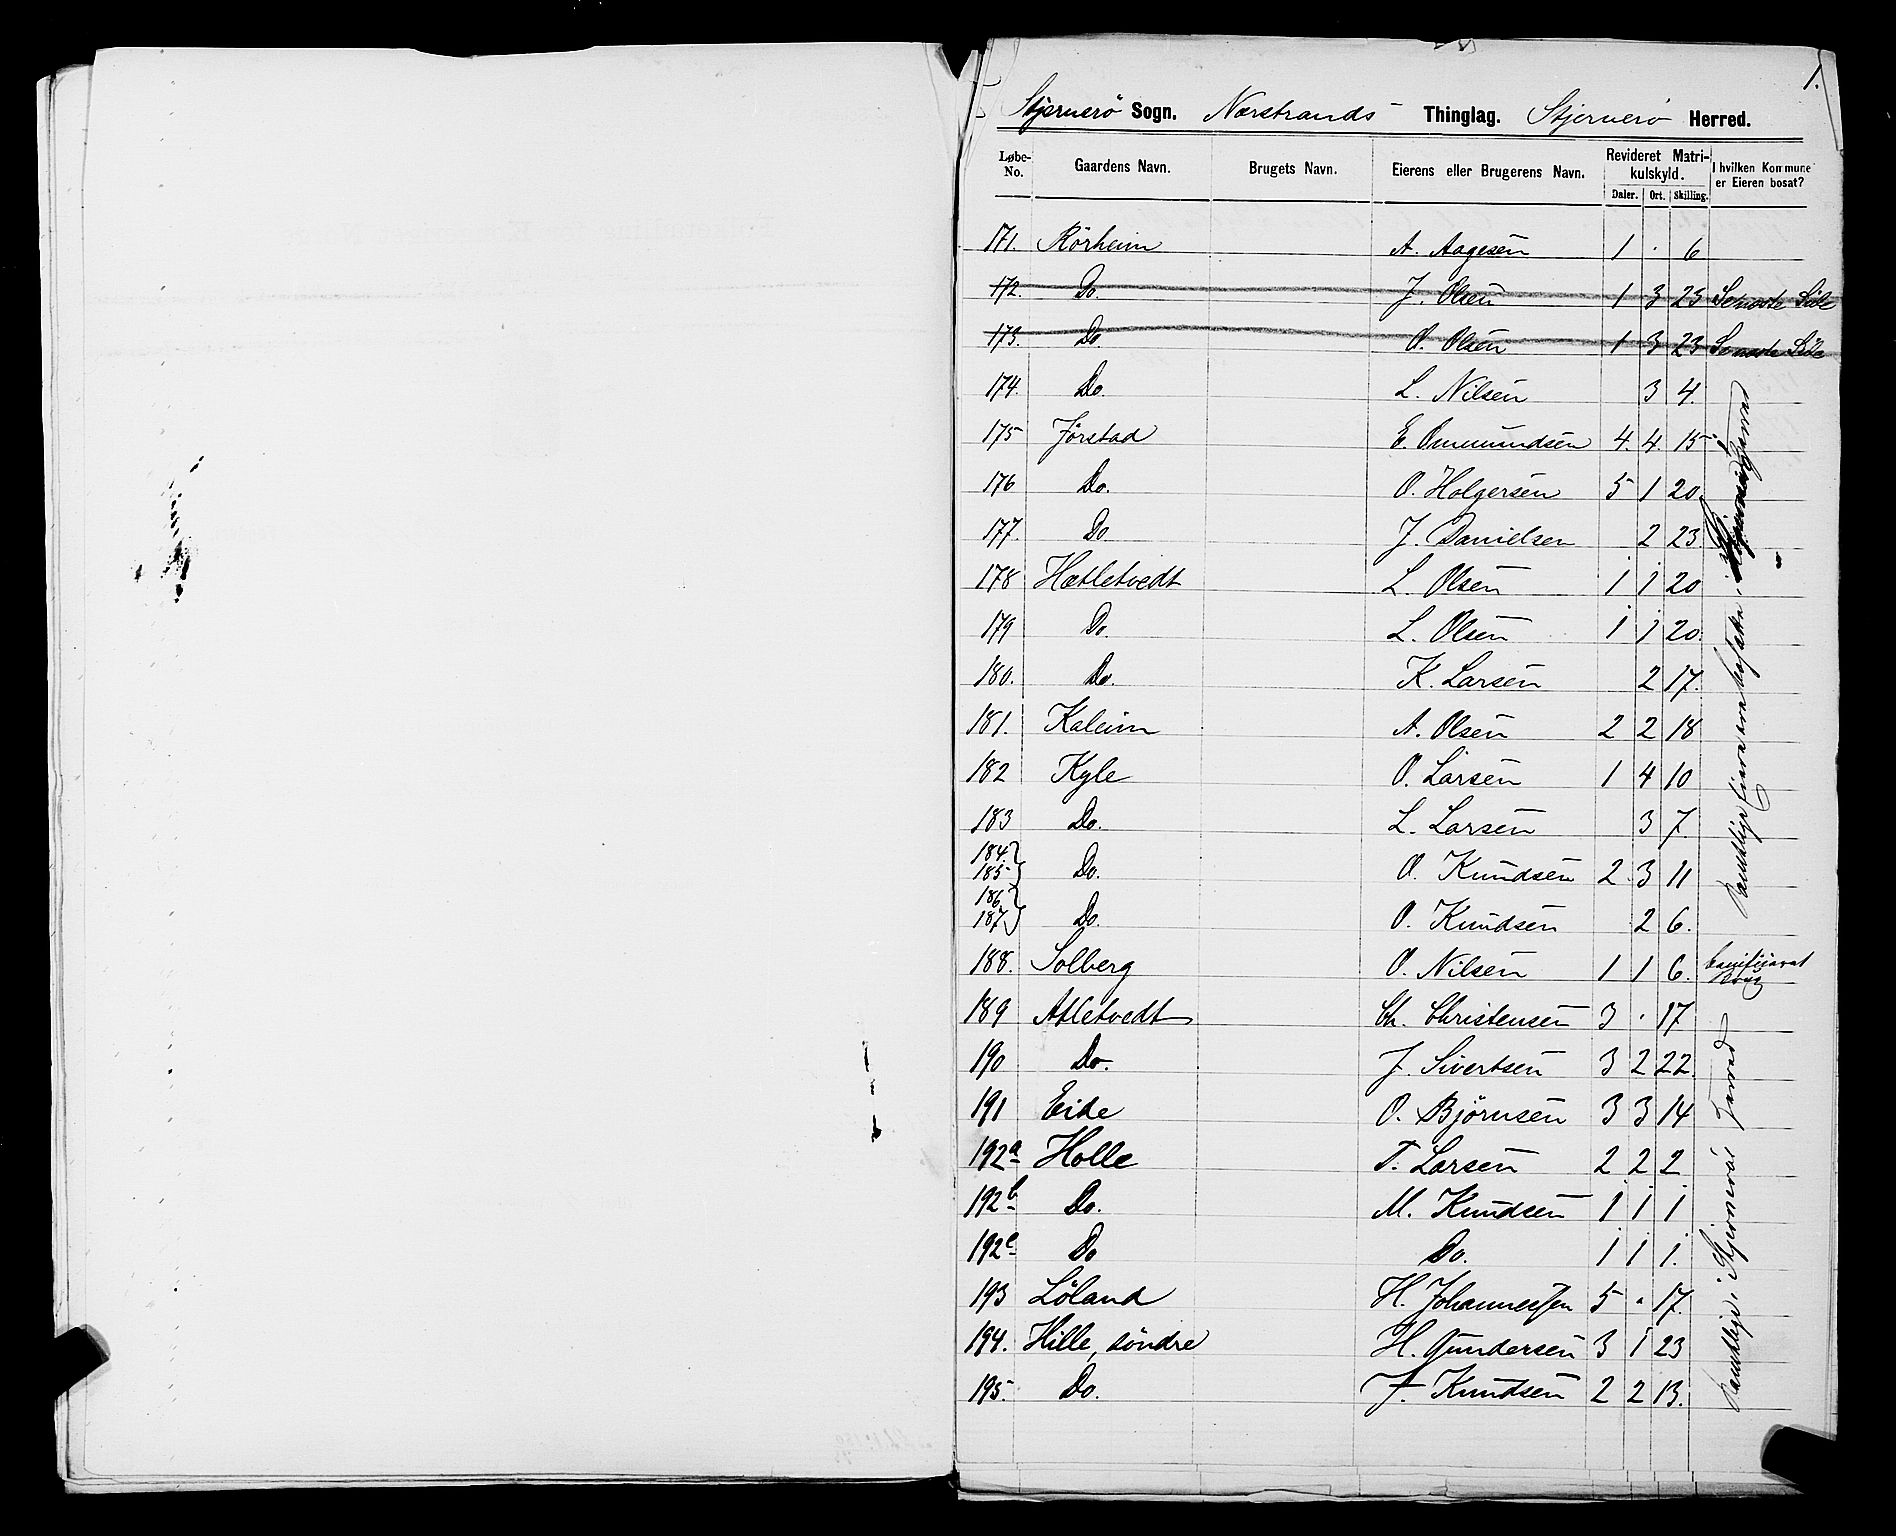 1.
Stjernerö Sogn. Nærstrands Thinglag. Stjernerö Herred.
Løbe-No. Gaardens Navn. Brugets Navn. Eierens eller Brugerens Navn. Revideret Matrikulskyld. I hvilken Kommune er Eieren bosat?
Daler. Ort. Skilling.
171. Rörheim A. Aagesen 1 . 6
172. Do. J. Olsen 1 3 23 Seneste Side
173. Do. O. Olsen 1 3 23 Seneste Side
174. Do. L. Nilsen 3 4.
175 Jörstad E. Ommundsen 4. 4. 15
176 Do. O. Holgersen 5 1 20
177. Do J. Danielsen 2 23.
178 Hætletvedt L. Olsen 1 1 20
179 Do. L. Olsen 1 1 20.
180. Do. K. Larsen 2 17.
181. Kaleim A. Olsen 2 2 18
182 Kyle O. Larsen 1 4 10
183 Do. L. Larsen 3 7
184. 185 Do. O. Knudsen 2. 3 11
186 187 Do. O. Knudsen 2 6.
188. Solberg O. Nilsen 1 1 6.
189 Atletvedt Ch. Christensen 3 . 17
190 Do. J. Sivertsen 3 2 22.
191 Eide O. Björnsen 3 3 14
192a Holle T. Larsen 2 2 2
192b Do. M. Knudsen 1 1 1
192c Do Do. 1 1 1.
193 Löland H. Johannessen 5 . 17.
194. Hille, söndre H. Gundersen 3 1 23
195. Do. J. Knudsen 2 2 13.
Samtlige i Stjernerös Herred